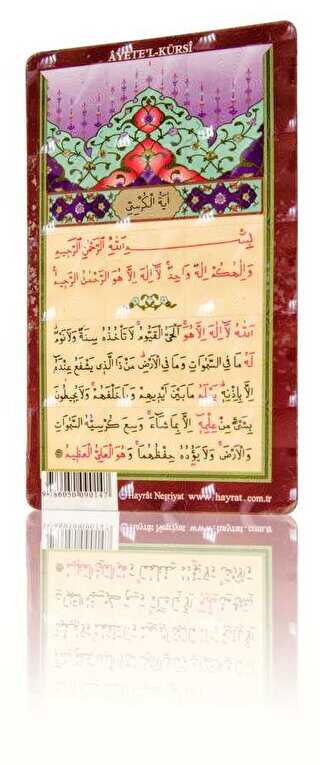 ÂYETE'L-KÜRSÎ
اٰيَةُ الْكُرْسِىِّ
بِسْمِ اللّٰهِ الرَّحْمٰنِ الرَّحِيمِ
وَاِلٰهُكُمْ اِلٰهٌ وَاحِدٌ لَٓا اِلٰهَ اِلَّا هُوَ الرَّحْمٰنُ الرَّحِيمُ
اَللّٰهُ لَٓا اِلٰهَ اِلَّا هُوَ اَلْحَىُّ الْقَيُّومُ لَا تَأْخُذُهُ سِنَةٌ وَلَا نَوْمٌ
لَهُ مَا فِى السَّمٰوَاتِ وَمَا فِى الْاَرْضِ مَنْ ذَا الَّذِى يَشْفَعُ عِنْدَهُٓ
اِلَّا بِاِذْنِهِ يَعْلَمُ مَا بَيْنَ اَيْدِيهِمْ وَمَا خَلْفَهُمْ وَلَا يُحِيطُونَ
بِشَىْءٍ مِنْ عِلْمِهِٓ اِلَّا بِمَا شَٓاءَ وَسِعَ كُرْسِيُّهُ السَّمٰوَاتِ
وَالْاَرْضَ وَلَا يَؤُدُهُ حِفْظُهُمَا وَهُوَ الْعَلِىُّ الْعَظِيمُ
© Hayrât Neşriyat www.hayrat.com.tr